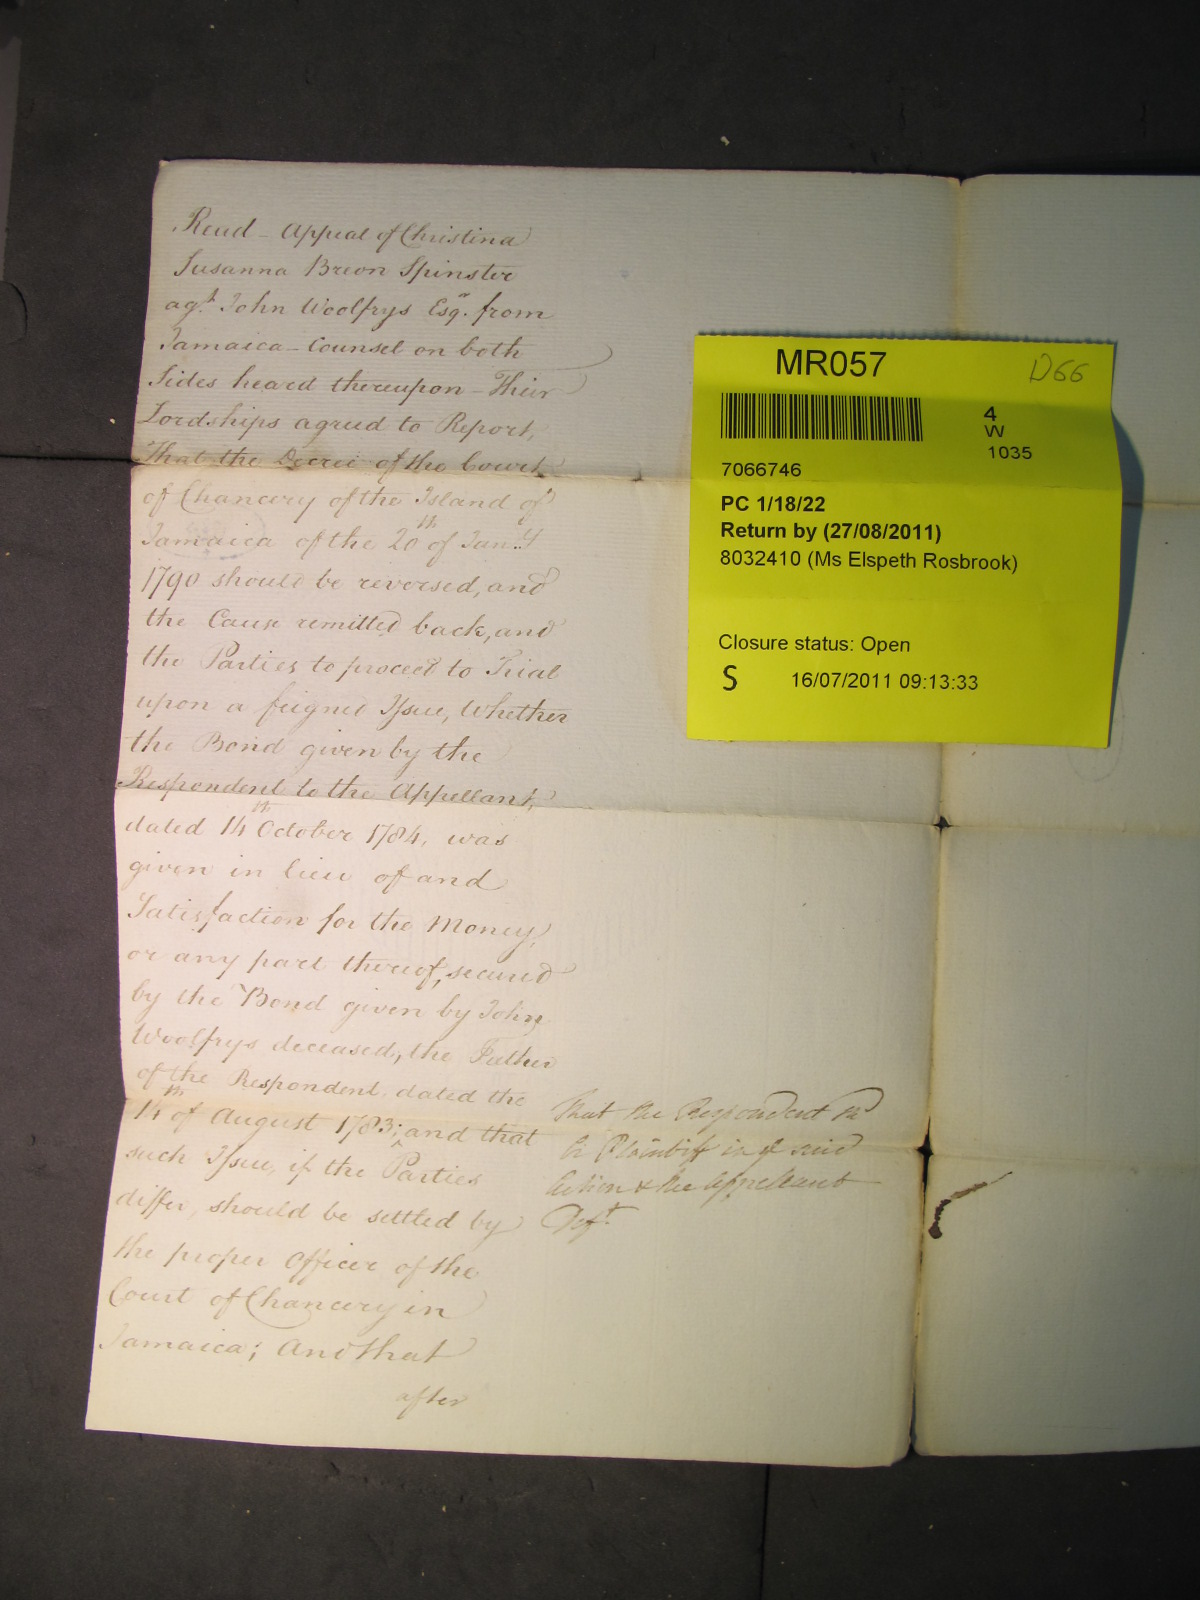 Read - Appeal of Christina
Susanna Breon Spinster
agt. John Woolfrys Esqr. from
Jamaica - Counsel on both
Sides heard thereupon - Their
Lordships agreed to Report,
That the Decree of the Court
of Chancery of the Island of
Jamaica of the 20th of Jany.
1790 should be reversed, and
the Cause remitted back, and
the Parties to proceed to Trial
upon a feigned Issue, Whether
the Bond given by the
Respondent to the Appellant,
dated 14th October 1784, was
given in lieu of and
Satisfaction for the Money,
or any part thereof, secured
by the Bond given by John
Woolfrys deceased, the Father
of the Respondent, dated the
14th of August 1783; ‸ and that
such Issue, if the Parties
differ, should be settled by
the proper Officer of the
Court of Chancery in
Jamaica; And that
after
that the Respondent
be Plaintiff in ye said
Action & the Appellant
Deft.
MR057
D66
4
W
1035
7066746
PC 1/18/22
Return by (27/08/2011)
8032410 (Ms Elspeth Rosbrook)
Closure status: Open
S 16/07/2011 09:13:33